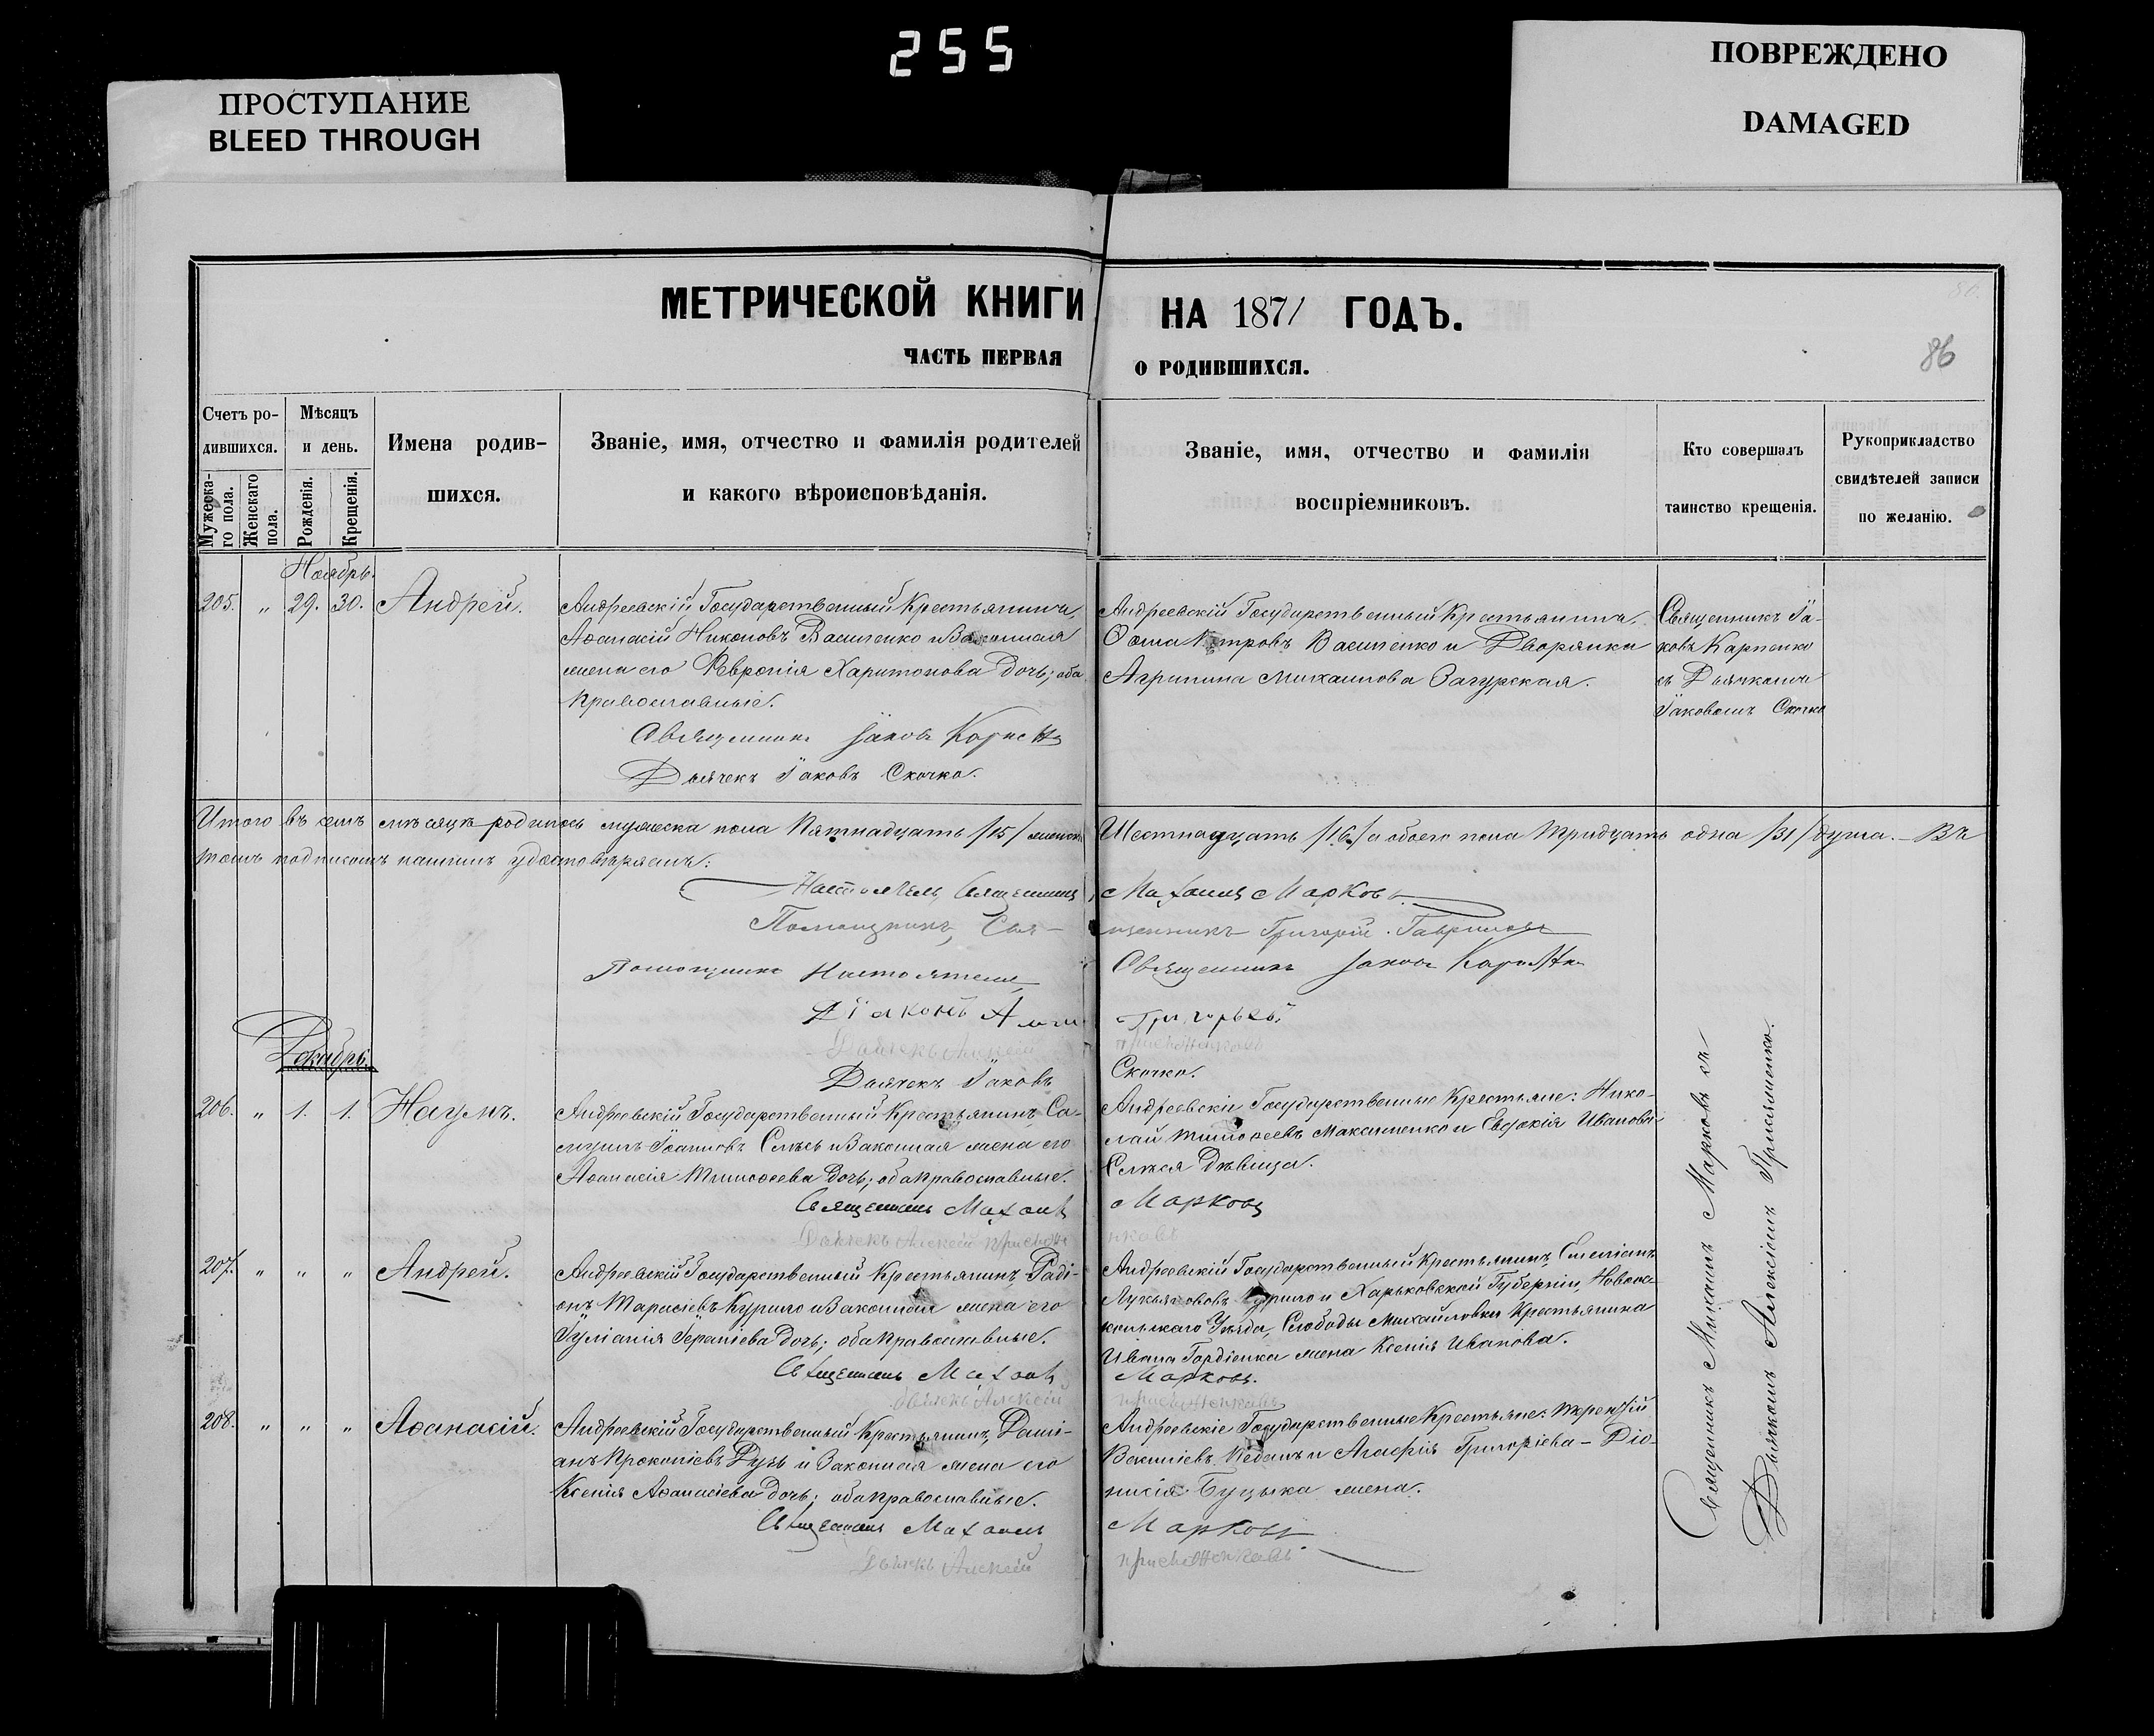 255
ПРОСТУПАНИЕ
BLEED THROUGH
ПОВРЕЖДЕНО
DAMAGED
МЕТРИЧЕСКОЙ КНИГИ НА 1871 ГОДЪ.
ЧАСТЬ ПЕРВАЯ О РОДИВШИХСЯ.
86
Счетъ ро-
дившихся.
Мужеска-
го пола.
Женскаго
пола.
Мѣсяцъ
и день.
Рожденія.
Крещенія.
Имена родив-
шихся.
Званіе, имя, отчество и фамилія родителей
и какого вѣроисповѣданія.
Званіе, имя, отчество и фамилія
воспріемниковъ.
Кто совершалъ
таинство крещенія.
Рукоприкладство
свидѣтелей записи
по желанію.
Ноябрь.
205. " 29. 30. Андрей.
Андреевскій Государственный Крестьянинъ,
Аѳанасій Никоновъ Василенко и Законная
жена его Февронія Харитонова дочь; оба
православные.
Священникъ Іаковъ
Дьячекъ Іаковъ Скочко.
Андреевскій Государственный Крестьянинъ,
Ѳома Петровъ Василенко и Дворянка
Агрипина Михаилова Загурская.
Священникъ Іа-
ковъ Карпенко
съ Дьячкомъ
Іаковомъ Скочко
Итого въ семъ мѣсяцѣ родилось мужеска пола Пятнадцать /15/ женска Шестнадцать /16/ а обоего пола тридцать одна /31/ душа. – Въ
томъ подписомъ нашимъ удостовѣряемъ:
Настоятель, Священникъ Михаилъ Марковъ
Помощникъ, Священникъ Григорій Гавриловъ
Помощникъ Настоятеля, Священникъ Іаковъ
Діаконъ Григорьевъ
Дьячекъ Алексѣй
Дьячекъ Іаковъ Скочко.
Декабрь.
206. " 1. 1. Наумъ.
Андреевскій Государственный Крестьянинъ, Са-
муилъ Іоанновъ и Законная жена его
Аѳанасія Тимоѳеева дочь; оба православные.
Священникъ Михаилъ Марковъ
Дьячекъ Алексѣй
Андреевскіе Государственные Крестьяне: Нико-
лай Тимоѳеевъ Максименко и Евдокія Иванова
дѣвица.
207. " " " Андрей.
Андреевскій Государственный Крестьянинъ, Роді-
онъ Тарасіевъ Курило и Законная жена его
Іуліанія дочь; оба православные.
Священникъ Михаилъ Марковъ.
Дьячекъ Алексѣй
Андреевскій Государственный Крестьянинъ, Емеліанъ
Лукьяновъ Курило и Харьковской Губерніи,
Уѣзда, Слободы Михайловки Крестьянина
Ивана Гордіенка жена Ксенія Иванова.
208. " " " Аѳанасій.
Андреевскій Государственный Крестьянинъ, Дамі-
анъ Прокопіевъ и Законная жена его
Ксенія Аѳанасіева дочь; оба православные.
Священникъ Михаилъ Марковъ
Дьячекъ Алексѣй
Андреевскіе Государственные Крестьяне:
Василіевъ и Агафія Григоріева – Діо-
нисія Буцыка жена.
Священникъ Михаилъ Марковъ съ
Дьячкомъ Алексѣемъ